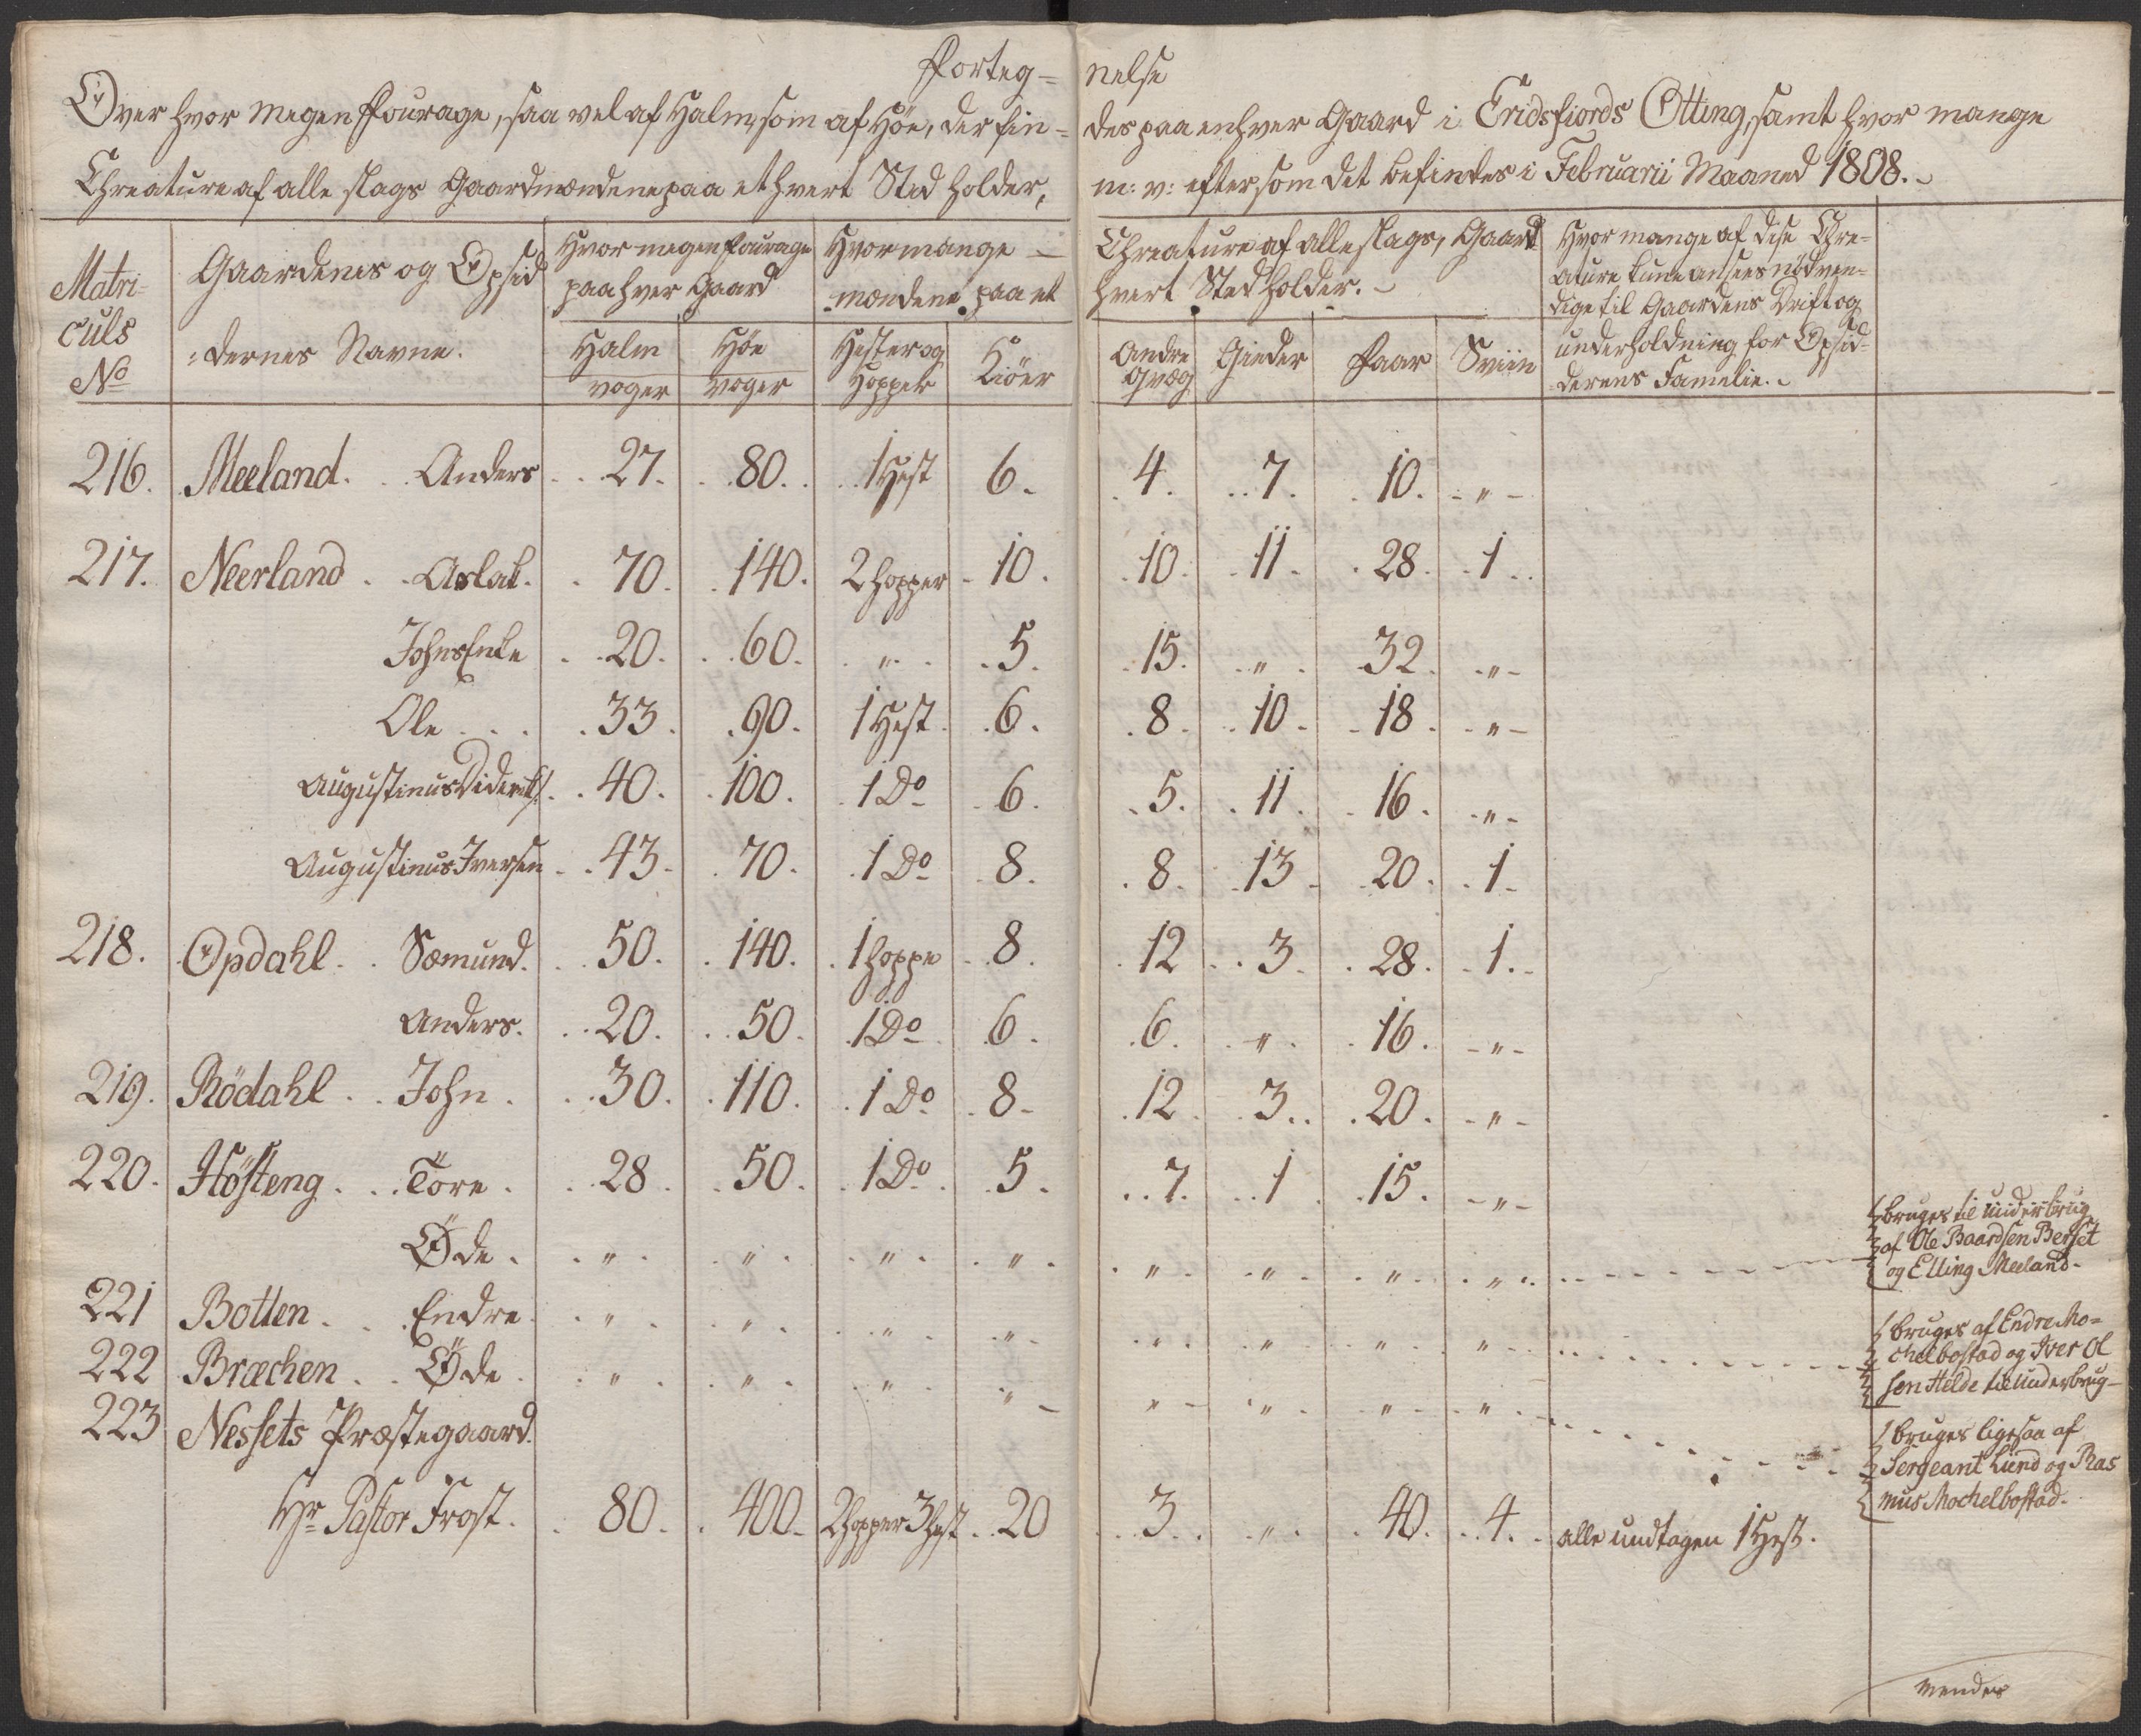 Forteg= nelse
Over hvor megen Fourage, saa vel af Halm, som af Höe, der fin= des paa enhver Gaard i Eridsfiords Otting, samt hvor mange
Chreature af alle slags Gaardmændene paa ethvert Sted holder, m: v: eftersom det befindes i Februarii Maaned 1808.
Matri-
culs
No
Gaardenes og Opsid
=dernes Navne.
Hvor megen Fourage
paa hver Gaard
Halm
voger
Höe
voger
Hvor mange — Chreature af alle slags, Gaard
mændene paa et hvert Sted holder.
Hester og
Hopper
Kiöer
Andre
Qvæg
Gieder
Faar
Sviin
Hvor mange af disse Chre-
ature kune ansees nödven-
dige til Gaardens Drift og
underholdning for Opsid-
derens Familie.
216. Meeland. . . Anders . . 27. . 80. . . 1 Hest 6. . 4. . . 7. . 10. - " -
217. Neerland . . Aslak. . 70. . 140. 2 Hopper . 10. . 10. . 11. . 28. . 1. .
Johns Enke . . 20. . 60. . " . . 5. . 15. . " . 32. . " -
Ole . . . . 33. . 90. 1 Hest . 6. . 8. . 10. - 18. - " -
Augustinus Diderich/: . . 40. . 100. . 1 Do . 6. . 5. . 11. . 16. . " -
Augustinus Iversen . . 43. . 70. . 1 Do . 8. . 8. . 13. . 20. . 1.
218. Opdahl. . Sæmund. . . 50. . 140. . 1 Hoppe . 8. . 12 . . 3. . 28. . 1. -
Anders. . . 20. . . 50. . 1 Do . 6. . 6. . " . . 16. - " -
219. Rödahl . . John . . . 30. . 110. . 1 Do . 8 - . 12. . 3. . . 20. - " -
220. Hösteng . . . Töre . . . 28 . . 50. . 1 Do . . 5. . . 7. . . 1 . . 15. - " -
Øde . . " . . " . . " . . " . . " . . " . . " . . " . .
{ bruges til underbrug
af Ole Baardsen Berset
og Elling Meeland.
221 Botten . . . Endre . . " . . " . . " . . " . . " . . " . . " . . " . .
{ bruges af Endre Mo=
chelbostad og Iver Ol
sen Helde til underbrug
222 Bræchen . . Øde . . " . . " . . " . . " - " - . " . . " . . " . .
{ bruges ligesaa af
Sergeant Lund og Ras
mus Mochelbostad.
223 Nessets Præstegaard.
Hr Pastor Frost. . 80. . 400. 2 Hopper 3 Hest . . 20 . . 3. . . " . . 40. . . 4. . alle undtagen 1 Hest.
vendes